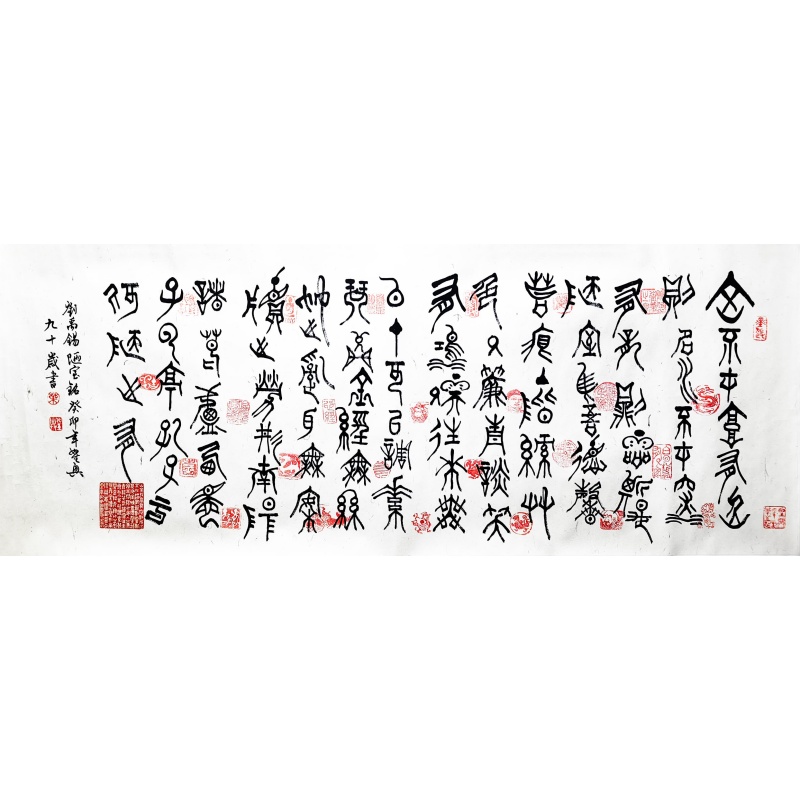 山不在高有仙
則名水不在深
有龍則靈斯是
陋室惟吾德馨
苔痕上階綠草
色入簾青談笑
有鴻儒往來無
白丁可以調素
琴閱金經無絲
竹之亂耳無案
牘之勞形南陽
諸葛廬西蜀
子云亭孔子云
何陋之有
劉禹錫陋室銘癸卯年
九十歲書